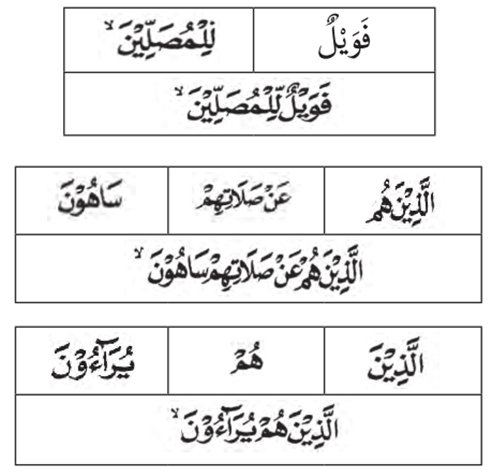 فَوَيْلٌ لِلْمُصَلِّيْنَ ۙ
فَوَيْلٌ لِّلْمُصَلِّيْنَ ۙ
الَّذِيْنَ هُمْ عَنْ صَلَاتِهِمْ سَاهُوْنَ
الَّذِيْنَ هُمْ عَنْ صَلَاتِهِمْ سَاهُوْنَ ۙ
الَّذِيْنَ هُمْ يُرَاۤءُوْنَ
الَّذِيْنَ هُمْ يُرَاۤءُوْنَ ۙ